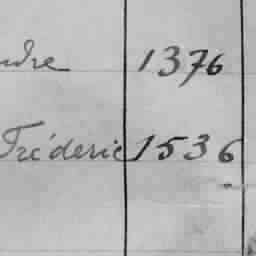 ndre 1376
Fréderic 1536